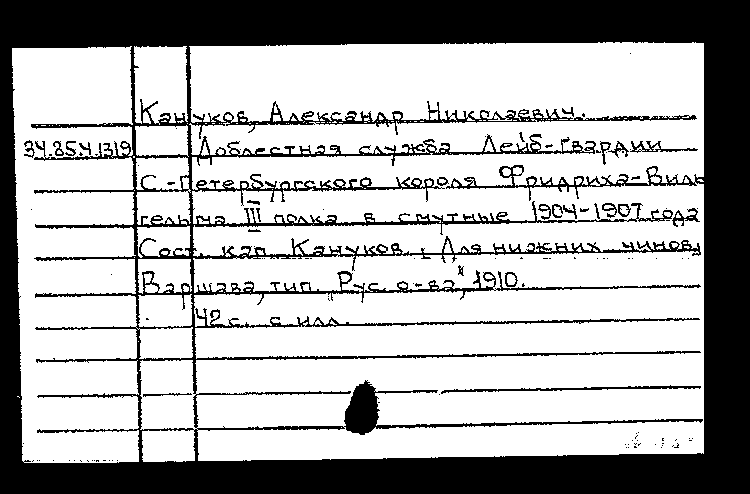 Кануков, Александр Николаевич.
34.85.4.1319 Доблестная служба Лейб-Гвардии
С.-Петербургского короля Фридриха-Виль
гельма III полка в смутные 1904-1907 года
Сост. кап. Кануков. Для нижних чинов,
Варшава, тип. „Рус. о-ва“, 1910.
42 с. с илл.